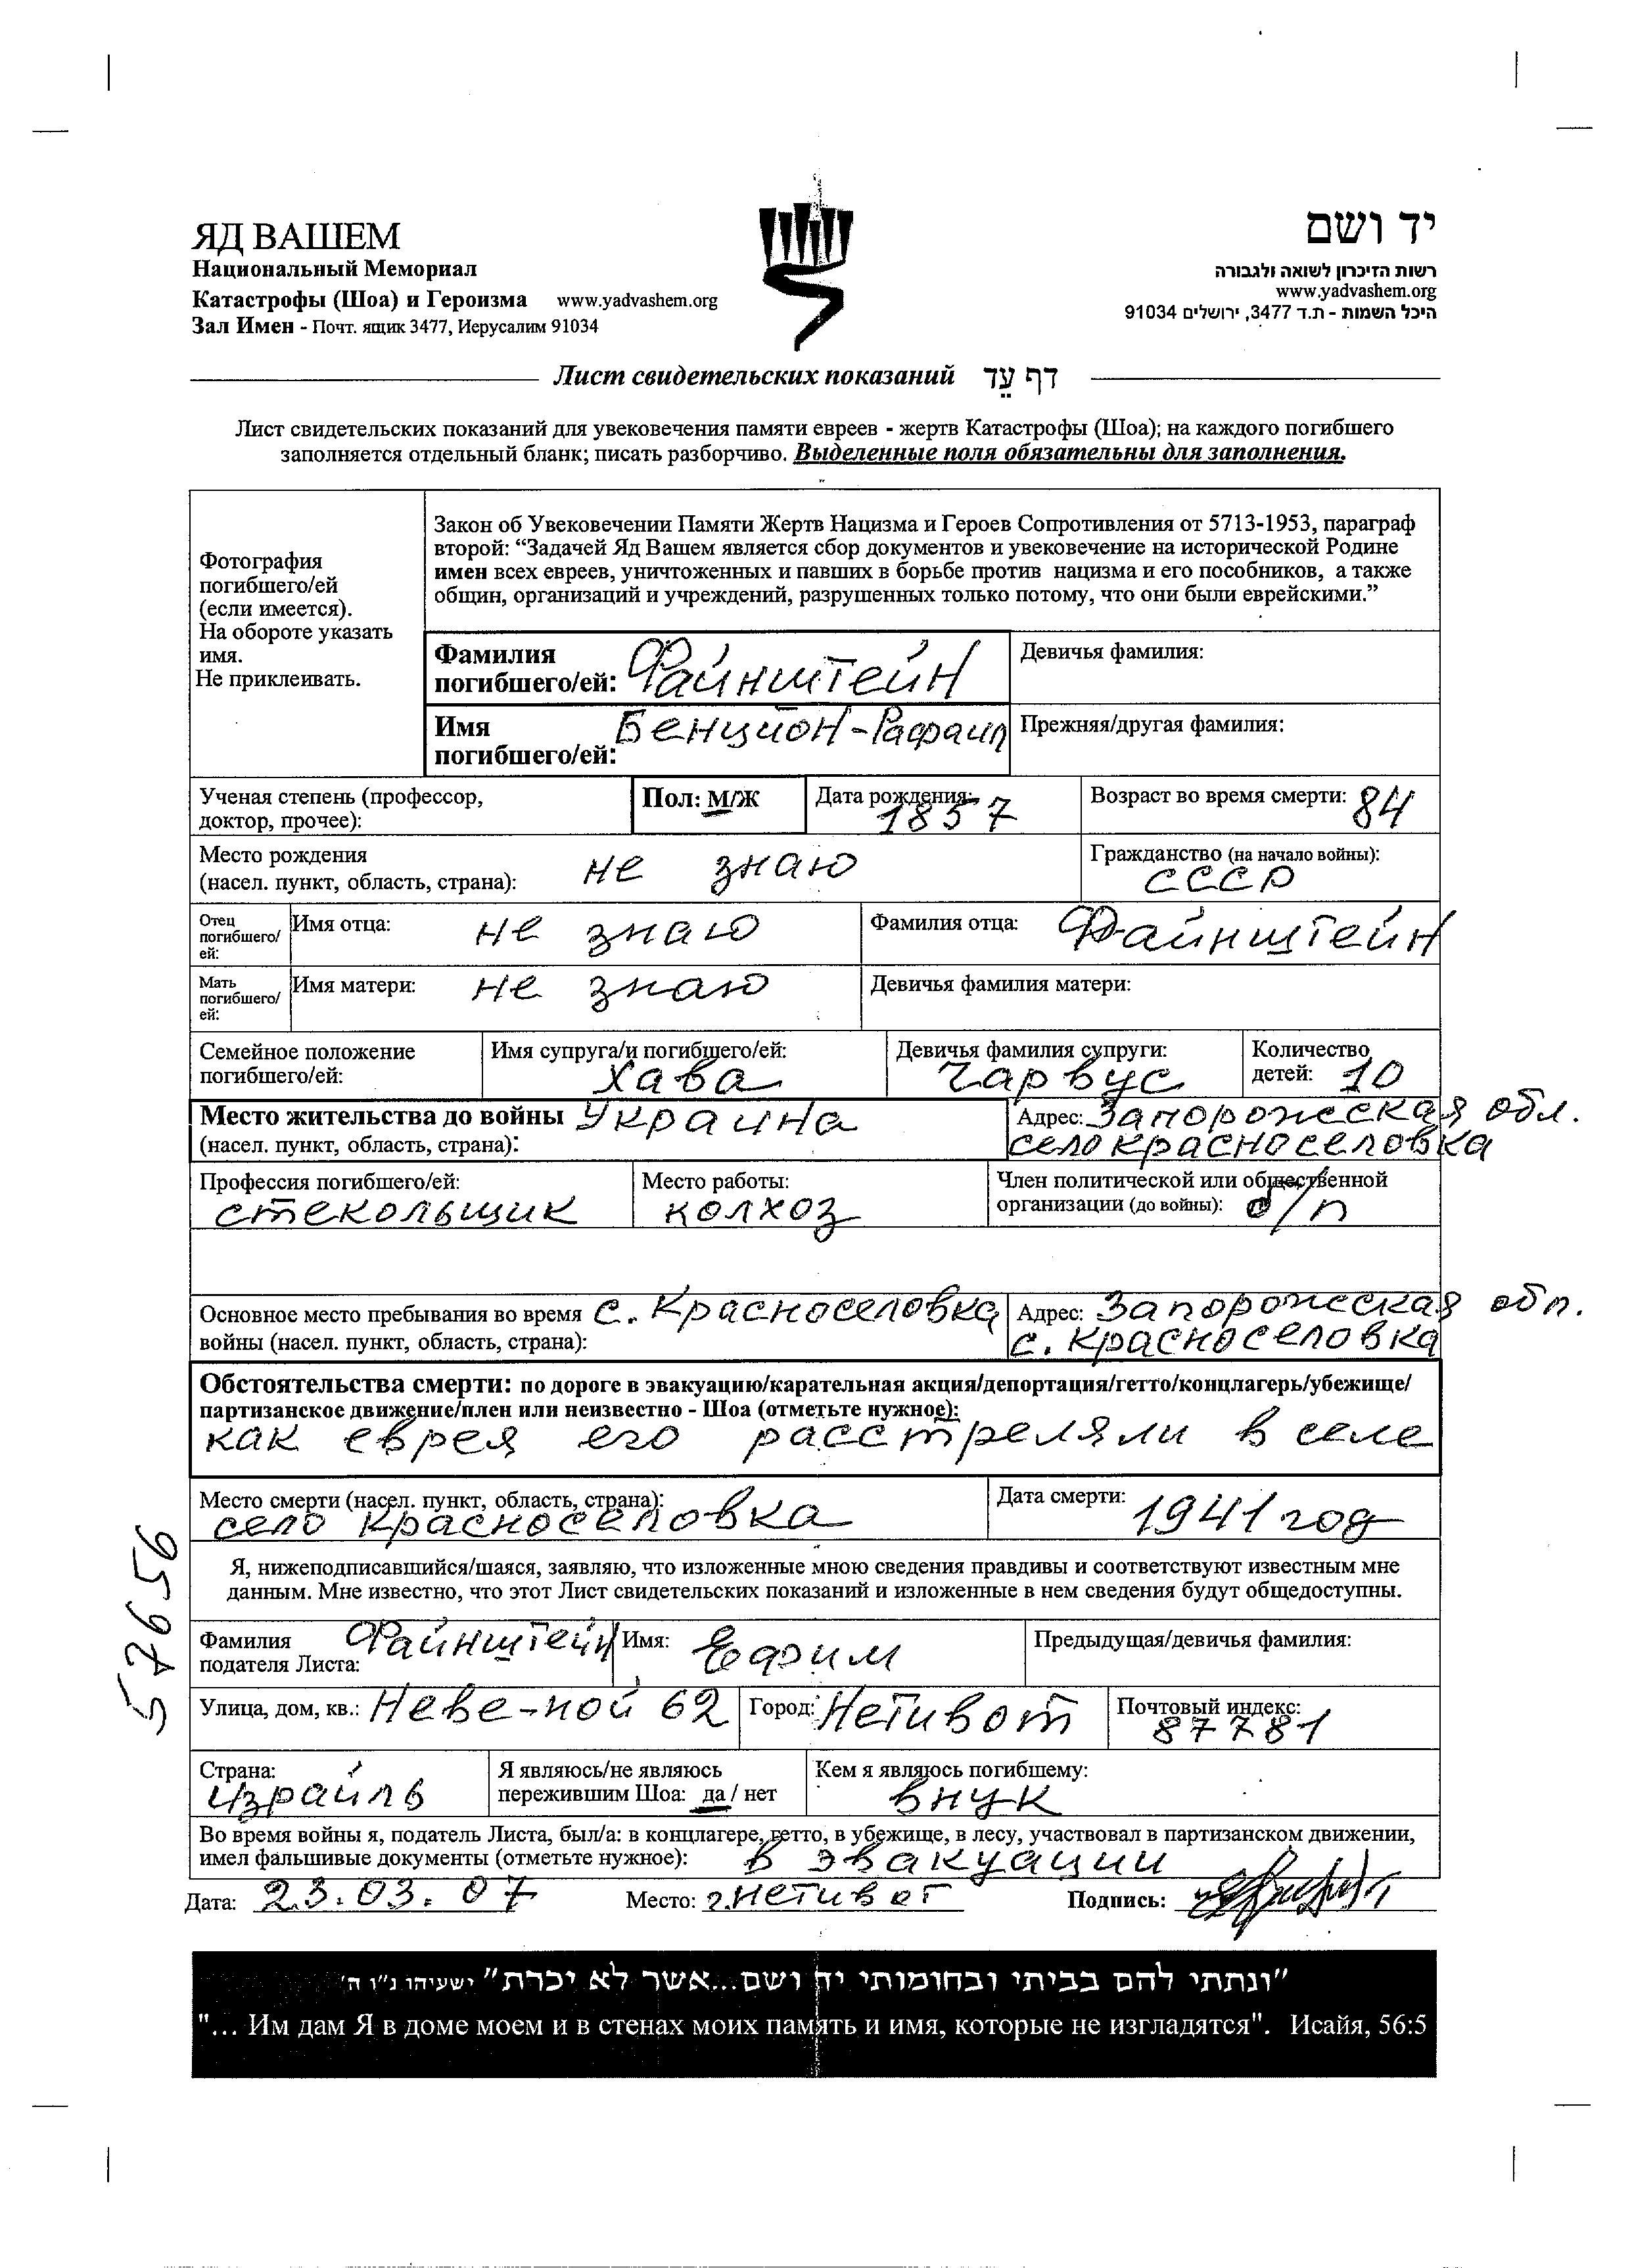 ЯД ВАШЕМ
Национальный Мемориал
Катастрофы (Шоа) и Героизма www.yadvashem.org
Зал Имен - Почт. ящик 3477, Иерусалим 91034
יד ושם
רשות הזיכרון לשואה ולגבורה
www.yadvashem.org
היכל השמות - ת.ד 3477, ירושלים 91034
Лист свидетельских показаний דף עֵד
Лист свидетельских показаний для увековечения памяти евреев - жертв Катастрофы (Шоа); на каждого погибшего
заполняется отдельный бланк; писать разборчиво. Выделенные поля обязательны для заполнения.
Фотография
погибшего/ей
(если имеется).
На обороте указать
имя.
Не приклеивать.
Закон об Увековечении Памяти Жертв Нацизма и Героев Сопротивления от 5713-1953, параграф
второй: “Задачей Яд Вашем является сбор документов и увековечение на исторической Родине
имен всех евреев, уничтоженных и павших в борьбе против нацизма и его пособников, а также
общин, организаций и учреждений, разрушенных только потому, что они были еврейскими.”
Фамилия
погибшего/ей: Файнштейн
Девичья фамилия:
Имя
погибшего/ей: Бенцион-Рафаил
Прежняя/другая фамилия:
Ученая степень (профессор,
доктор, прочее):
Пол: М/Ж
Дата рождения: 1857
Возраст во время смерти: 84
Место рождения
(насел. пункт, область, страна): не знаю
Гражданство (на начало войны):
СССР
Отец
погибшего/
ей:
Имя отца: не знаю
Фамилия отца: Файнштейн
Мать
погибшего/
ей:
Имя матери: не знаю
Девичья фамилия матери:
Семейное положение
погибшего/ей:
Имя супруга/и погибшего/ей:
Хава
Девичья фамилия супруги:
Чарвус
Количество
детей: 10
Место жительства до войны Украина
(насел. пункт, область, страна):
Адрес: Запорожеская обл.
село красноселовка
Профессия погибшего/ей:
стекольщик
Место работы:
колхоз
Член политической или общественной
организации (до войны): б/п
Основное место пребывания во время с. Красноселовка
войны (насел. пункт, область, страна):
Адрес: Запорожеская обл.
с. Красноселовка
Обстоятельства смерти: по дороге в эвакуацию/карательная акция/депортация/гетто/концлагерь/убежище/
партизанское движение/плен или неизвестно - Шоа (отметьте нужное):
как еврея его расстреляли в селе
Место смерти (насел. пункт, область, страна):
село Красноселовка
Дата смерти: 1941 год
57656
Я, нижеподписавшийся/шаяся, заявляю, что изложенные мною сведения правдивы и соответствуют известным мне
данным. Мне известно, что этот Лист свидетельских показаний и изложенные в нем сведения будут общедоступны.
Фамилия
подателя Листа: Файнштейн
Имя: Ефим
Предыдущая/девичья фамилия:
Улица, дом, кв.: Неве-ной 62
Город: Нетивот
Почтовый индекс:
87781
Страна:
Израиль
Я являюсь/не являюсь
пережившим Шоа: да / нет
Кем я являюсь погибшему:
внук
Во время войны я, податель Листа, был/а: в концлагере, гетто, в убежище, в лесу, участвовал в партизанском движении,
имел фальшивые документы (отметьте нужное): в эвакуации
Дата: 23.03.07 Место: г.Нетивот Подпись:
"ונתתי להם בביתי ובחומותי יד ושם...אשר לא יכרת" ישעיהו נ"ו ה'
"... Им дам Я в доме моем и в стенах моих память и имя, которые не изгладятся". Исайя, 56:5